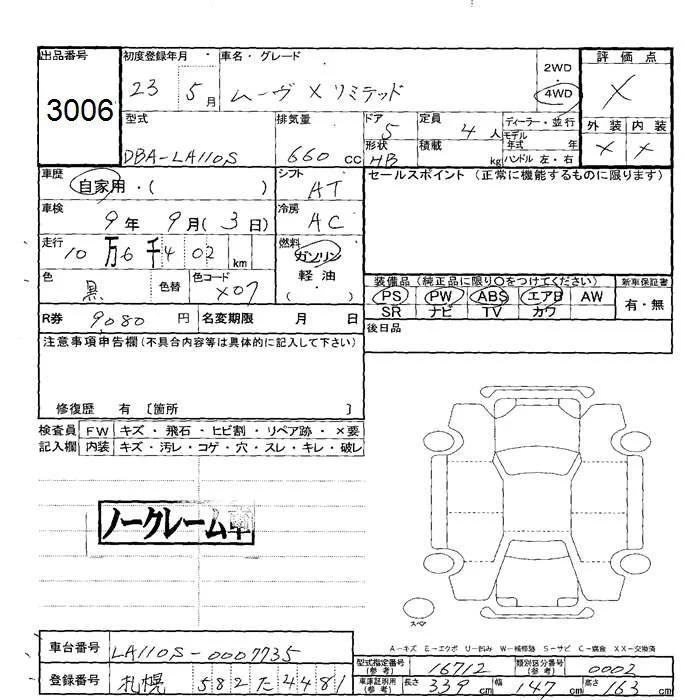 出品番号
3006
初度登録年月
23 5月
車名・グレード
ムーヴ X リミテッド
2WD
4WD
評価点
X
外装 内装
X X
型式
DBA-LA110S
排気量
660 cc
ドア 5
形状 HB
定員 4人
積載 kg
ディーラー・並行
モデル年式 年
ハンドル 左・右
車歴
自家用・( )
シフト
AT
セールスポイント (正常に機能するものに限ります)
車検
9年 9月(3日)
冷房
AC
走行
10万6千402 km
燃料
ガソリン
軽油
( )
色
黒
色替
色コード
X07
装備品 (純正品に限り○をつけてください)
新車保証書
PS PW ABS エアB AW
有・無
SR ナビ TV カワ
R券 9,080 円
名変期限 月 日
後日品
注意事項申告欄 (不具合内容等は具体的に記入して下さい)
修復歴 有 〔箇所 〕
検査員記入欄
FW キズ・飛石・ヒビ割・リペア跡・×要
内装 キズ・汚レ・コゲ・穴・スレ・キレ・破レ
ノークレーム車
スペア
A-キズ E-エクボ U-凹み W-補修跡 S-サビ C-腐食 XX-交換済
車台番号 LA110S-0007735
型式指定番号(参考) 16712
類別区分番号(参考) 0002
登録番号 札幌 582 た 4481
車庫証明用(参考) 長さ 339 cm 幅 147 cm 高さ 163 cm